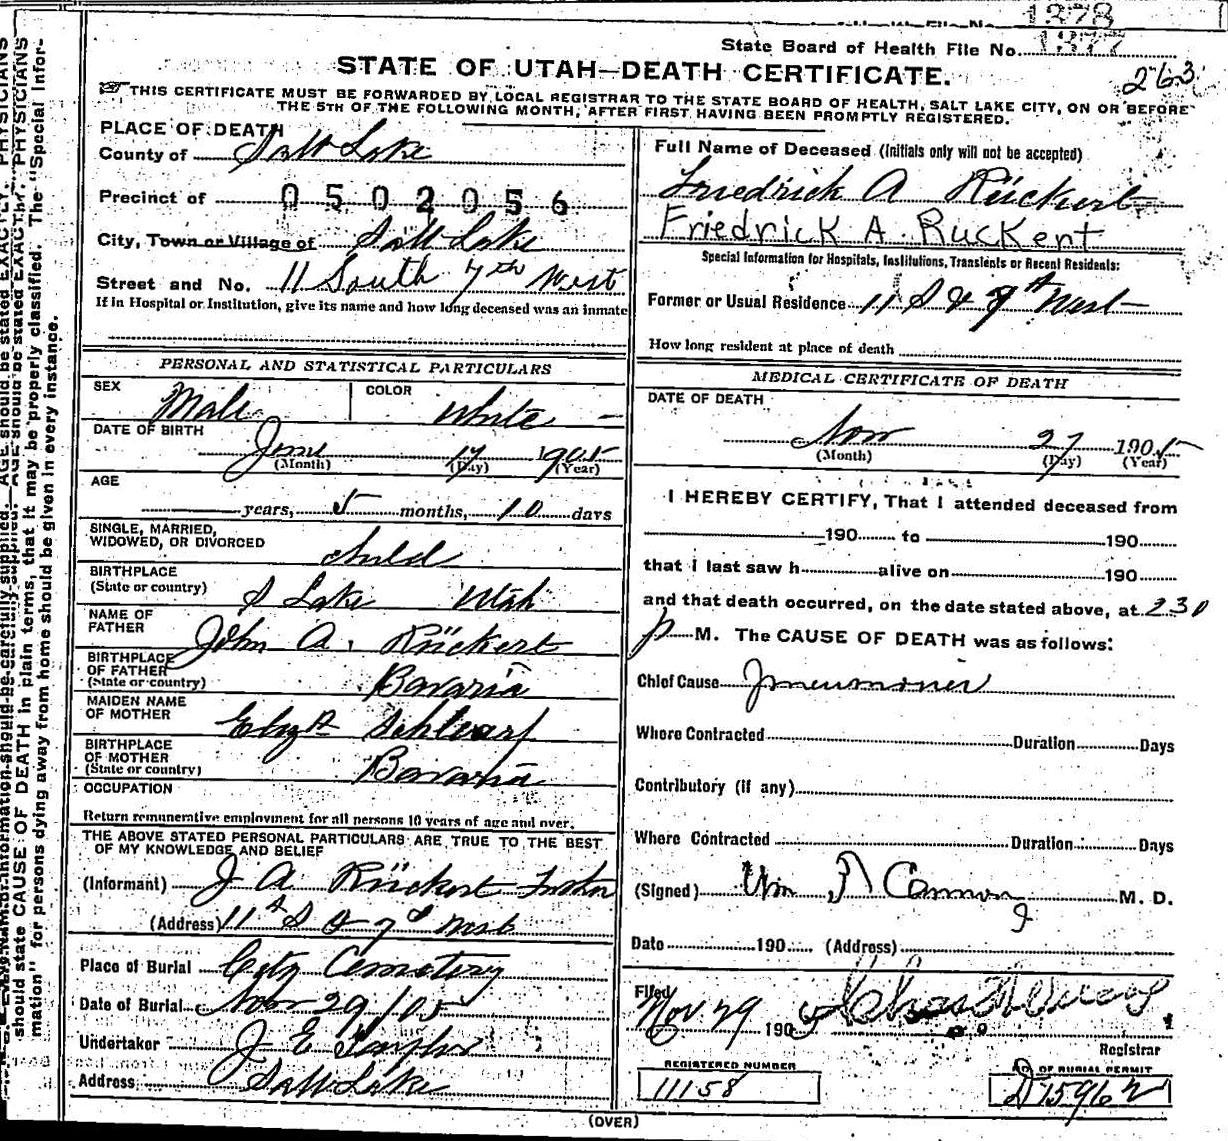 1378
State Board of Health File No. 1377
263
STATE OF UTAH—DEATH CERTIFICATE.
THIS CERTIFICATE MUST BE FORWARDED BY LOCAL REGISTRAR TO THE STATE BOARD OF HEALTH, SALT LAKE CITY, ON OR BEFORE
THE 5TH OF THE FOLLOWING MONTH, AFTER FIRST HAVING BEEN PROMPTLY REGISTERED.
PLACE OF DEATH
County of Salt Lake
Precinct of 0502056
City, Town or Village of Salt Lake
Street and No. 11 South 7th West
If in Hospital or Institution, give its name and how long deceased was an inmate
Full Name of Deceased (Initials only will not be accepted)
Friedrick A Rückert
Friedrick A. Ruckert
Special Information for Hospitals, Institutions, Transients or Recent Residents:
Former or Usual Residence 11 S & 7th West
How long resident at place of death
PERSONAL AND STATISTICAL PARTICULARS
SEX Male COLOR White
DATE OF BIRTH June 17 1905
(Month) (Day) (Year)
AGE
years, 5 months, 10 days
SINGLE, MARRIED,
WIDOWED, OR DIVORCED Child
BIRTHPLACE
(State or country) S Lake Utah
NAME OF
FATHER John A. Rückert
BIRTHPLACE
OF FATHER
(State or country) Bavaria
MAIDEN NAME
OF MOTHER Elizth
BIRTHPLACE
OF MOTHER
(State or country) Bavaria
OCCUPATION
Return remunerative employment for all persons 10 years of age and over.
THE ABOVE STATED PERSONAL PARTICULARS ARE TRUE TO THE BEST
OF MY KNOWLEDGE AND BELIEF
(Informant) J A Rückert
(Address) 11 S & 7th West
Place of Burial City Cemetery
Date of Burial Nov 29/05
Undertaker J E Taylor
Address Salt Lake
MEDICAL CERTIFICATE OF DEATH
DATE OF DEATH
Nov 27 1905
(Month) (Day) (Year)
I HEREBY CERTIFY, That I attended deceased from
190 to 190
that I last saw h alive on 190
and that death occurred, on the date stated above, at 230
p M. The CAUSE OF DEATH was as follows:
Chief Cause Pneumonia
Where Contracted Duration Days
Contributory (if any)
Where Contracted Duration Days
(Signed) Wm Cannon M. D.
Date 190 (Address)
Filed
Nov. 29 190
Registrar
REGISTERED NUMBER
11158
NO. OF BURIAL PERMIT
D15962
(OVER)
should state CAUSE OF DEATH in plain terms, that it may be properly classified. The "Special Infor-
mation" for persons dying away from home should be given in every instance.